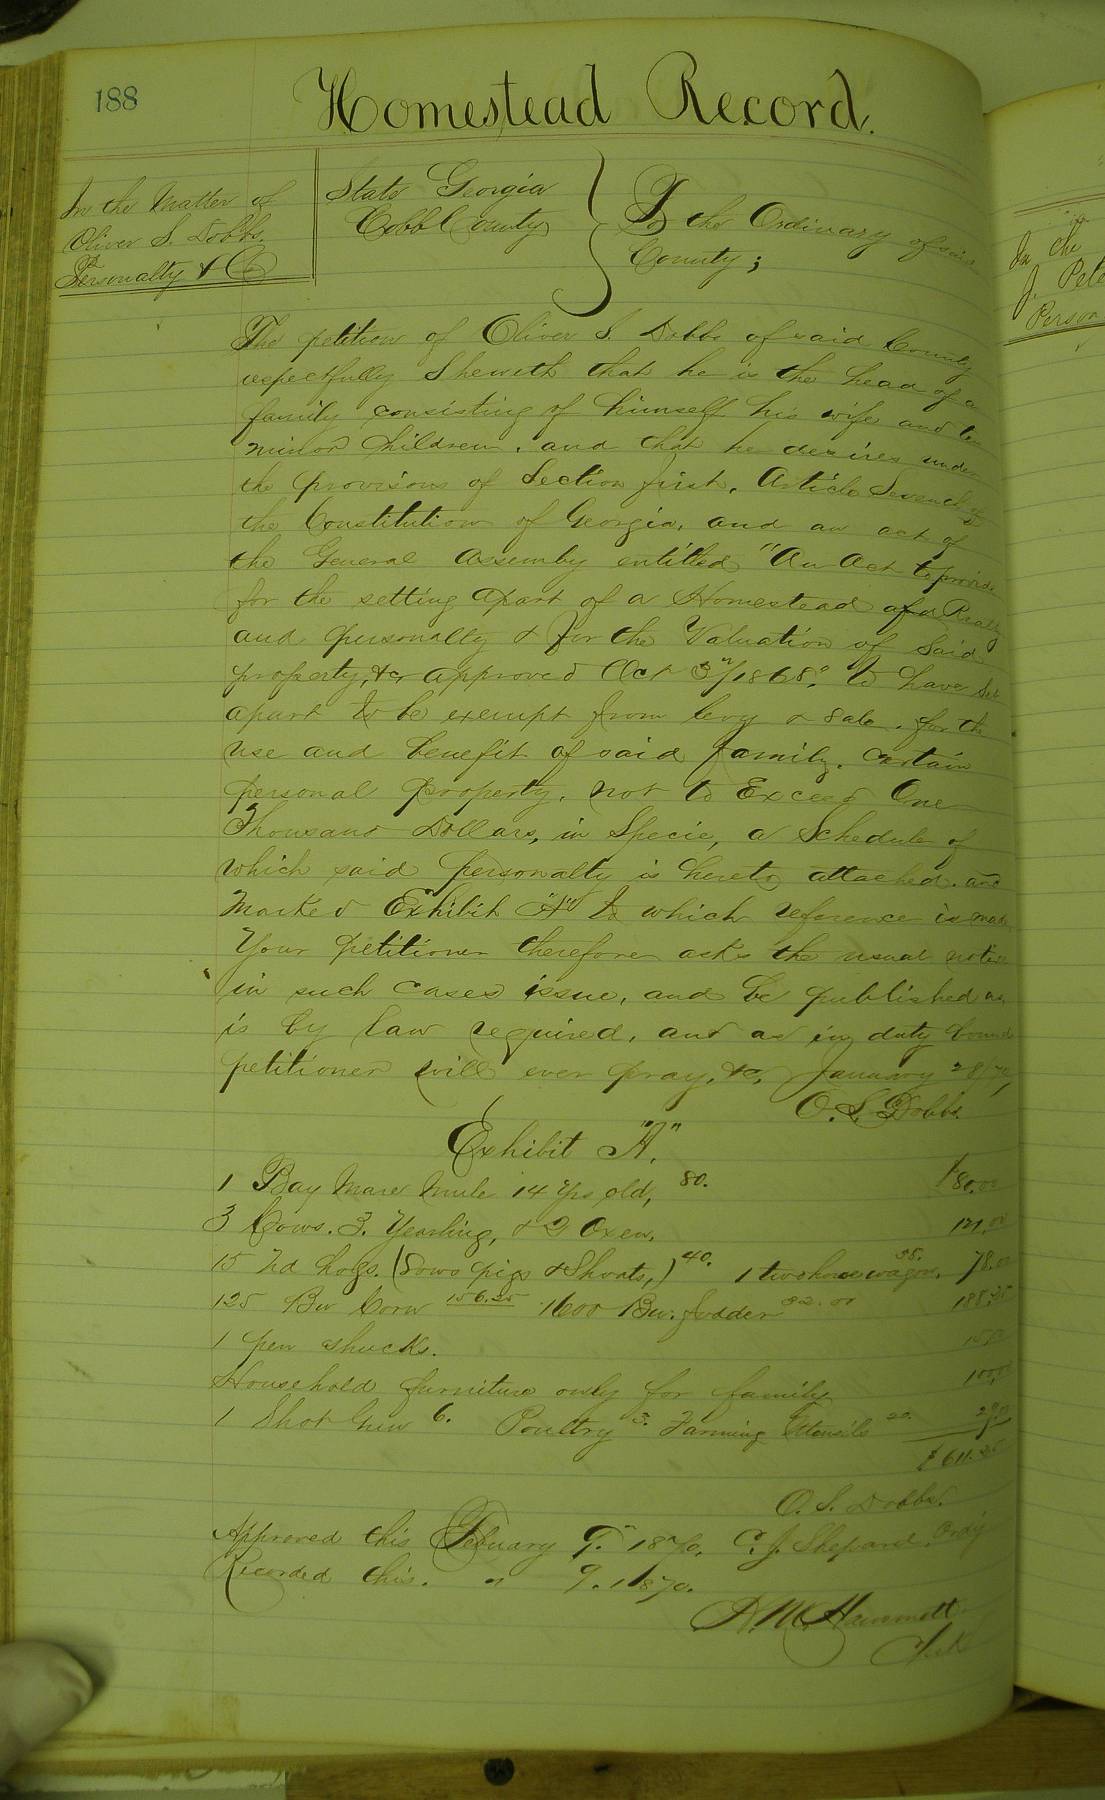 188
Homestead Record.
In the Matter of
Oliver S. Dobbs.
Personalty & C
State Georgia
Cobb County
To the Ordinary of said
County;
The petition of Oliver S. Dobbs of said County
respectfully Sheweth that he is the head of a
family consisting of himself his wife and
minor Children, and that he desires under
the provisions of Section first, Article Seventh of
the Constitution of Georgia, and an act of
the General Assembly entitled "An Act to provide
for the setting apart of a Homestead of Realty
and personalty & for the Valuation of Said
property, &c, approved Oct 3"/1868," to have Set
apart to be exempt from levy & sale, for the
use and benefit of said family, certain
personal property, not to Exceed One
Thousand Dollars, in Specie, a Schedule of
which said personalty is hereto attached and
Marked Exhibit "A" to which reference is made,
Your petitioner therefore asks the usual notice
in such cases issue, and be published as
is by law required, and as in duty bound
petitioner will ever pray, &c, January 28/70,
O. S. Dobbs.
Exhibit "A."
1 Bay Mare Mule 14 Yrs old, 80. $80.00
3 Cows. 3. Yearling, & 2 Oxen. 121.00
15 hd hogs. (Sows pigs & Shoats,) 40. 1 two horse wagon. 38. 78.00
125 Bu Corn 156.25 1600 Bu. fodder 32.00 188.25
1 pen shucks. 15
Household furniture only for family 100.00
1 Shot Gun 6. Poultry 3. Farming Utensils 20. 29.00
$611.25
O. S. Dobbs.
Approved this February 9." 1870, C. J. Shepard, Ordy
Recorded this. " 9. 1870.
Hammett
Clerk
In the
J. Pete
Person